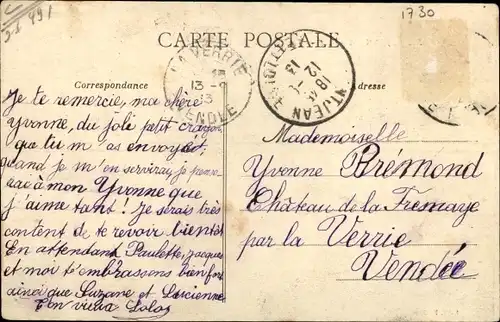 1730
CARTE POSTALE
Correspondance
LA VERRIE
13
VENDÉE
18
12
13
Je te remercie, ma chère
Yvonne, du joli petit crayon
que tu m'as envoyé,
quand je m'en servirai je pense
rai à mon Yvonne que
j'aime tant! Je serais très
content de te revoir bientôt
En attendant Paulette, Jacques
et moi t'embrassons bien fort
ainsi que Suzane et Lucienne
Ton vieux Lolo
Mademoiselle
Yvonne Brémond
Château de la Tremaye
par la Verrie
Vendée